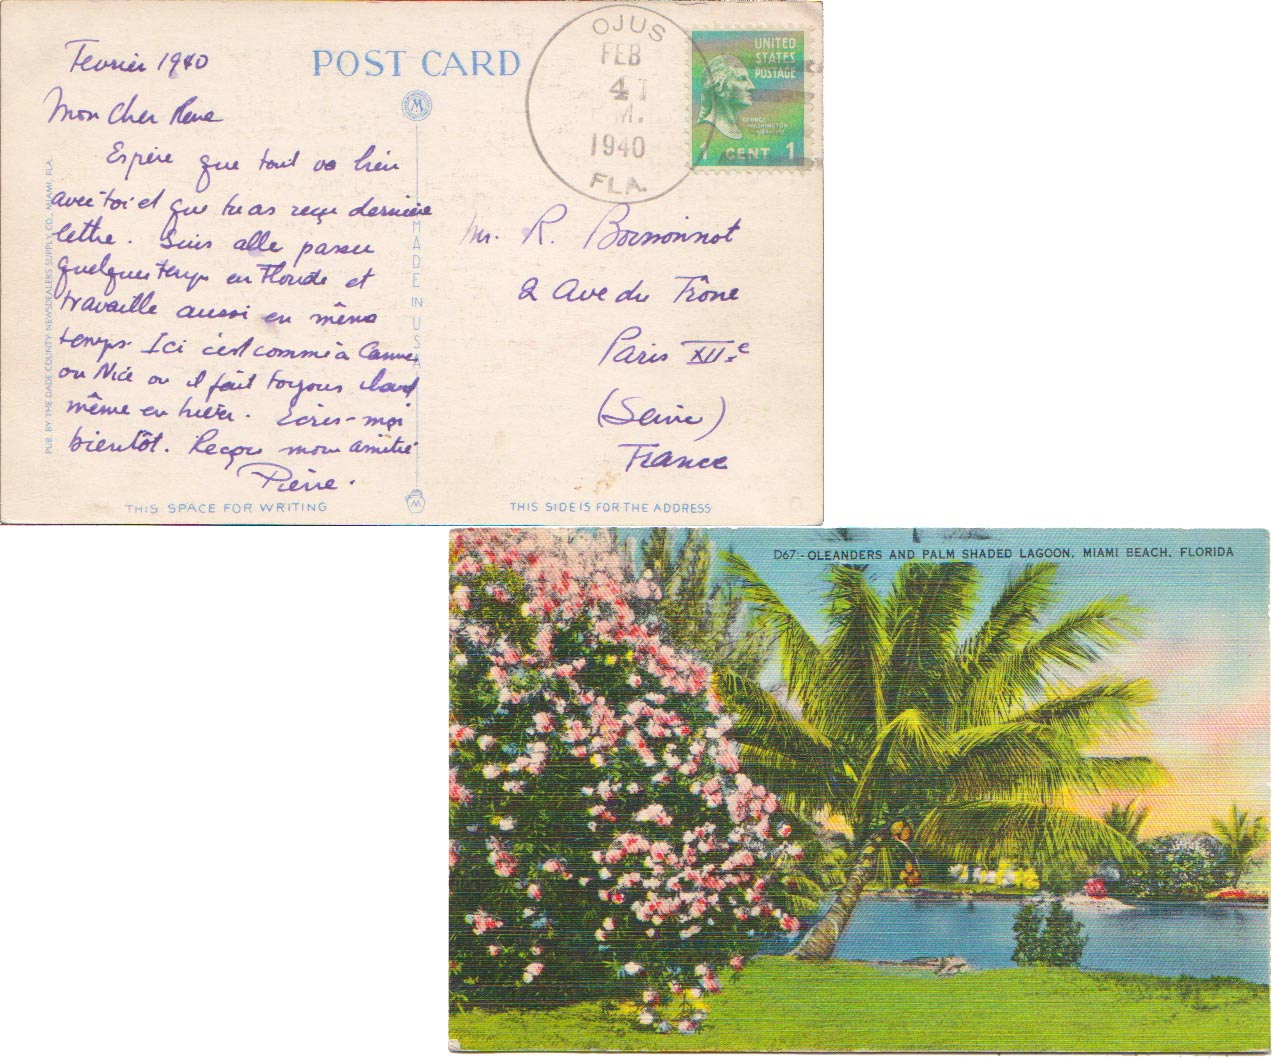 Fevrier 1940
POST CARD
Mon Cher Rene
Espère que tout va bien
avec toi et que tu as reçu dernière
lettre. Suis allé passer
quelques temps en Floride et
travaille aussi en même
temps. Ici c'est comme à Cannes
ou Nice ou il fait toujours chaud
même en hiver. Ecris-moi
bientôt. Reçois mon amitié
Pierre.
THIS SPACE FOR WRITING
PUB. BY THE DADE COUNTY NEWSDEALERS SUPPLY CO., MIAMI, FLA.
M
MADE IN USA
M
OJUS
FEB
4
M.
1940
FLA.
UNITED
STATES
POSTAGE
GEORGE
WASHINGTON
1 CENT 1
Mr. R. Boissonnot
2 Ave du Trône
Paris XII.e
(Seine)
France
THIS SIDE IS FOR THE ADDRESS
D67:-OLEANDERS AND PALM SHADED LAGOON, MIAMI BEACH, FLORIDA